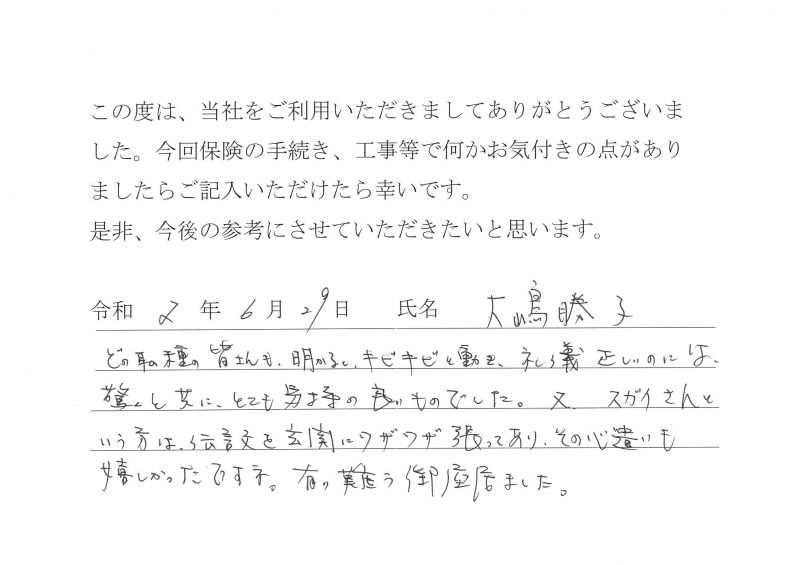 この度は、当社をご利用いただきましてありがとうございま
した。今回保険の手続き、工事等で何かお気付きの点があり
ましたらご記入いただけたら幸いです。
是非、今後の参考にさせていただきたいと思います。
令和 2 年 6 月 29 日 氏名 大嶋勝子
どの職種の皆さんも、明かるく、キビキビと動き、礼義正しいのには、
驚くと共に、とても気持の良いものでした。又、スガイさんと
いう方は、伝言文を玄関にワザワザ張ってあり、その心遣いも
嬉しかったですネ。有り難う御座居ました。